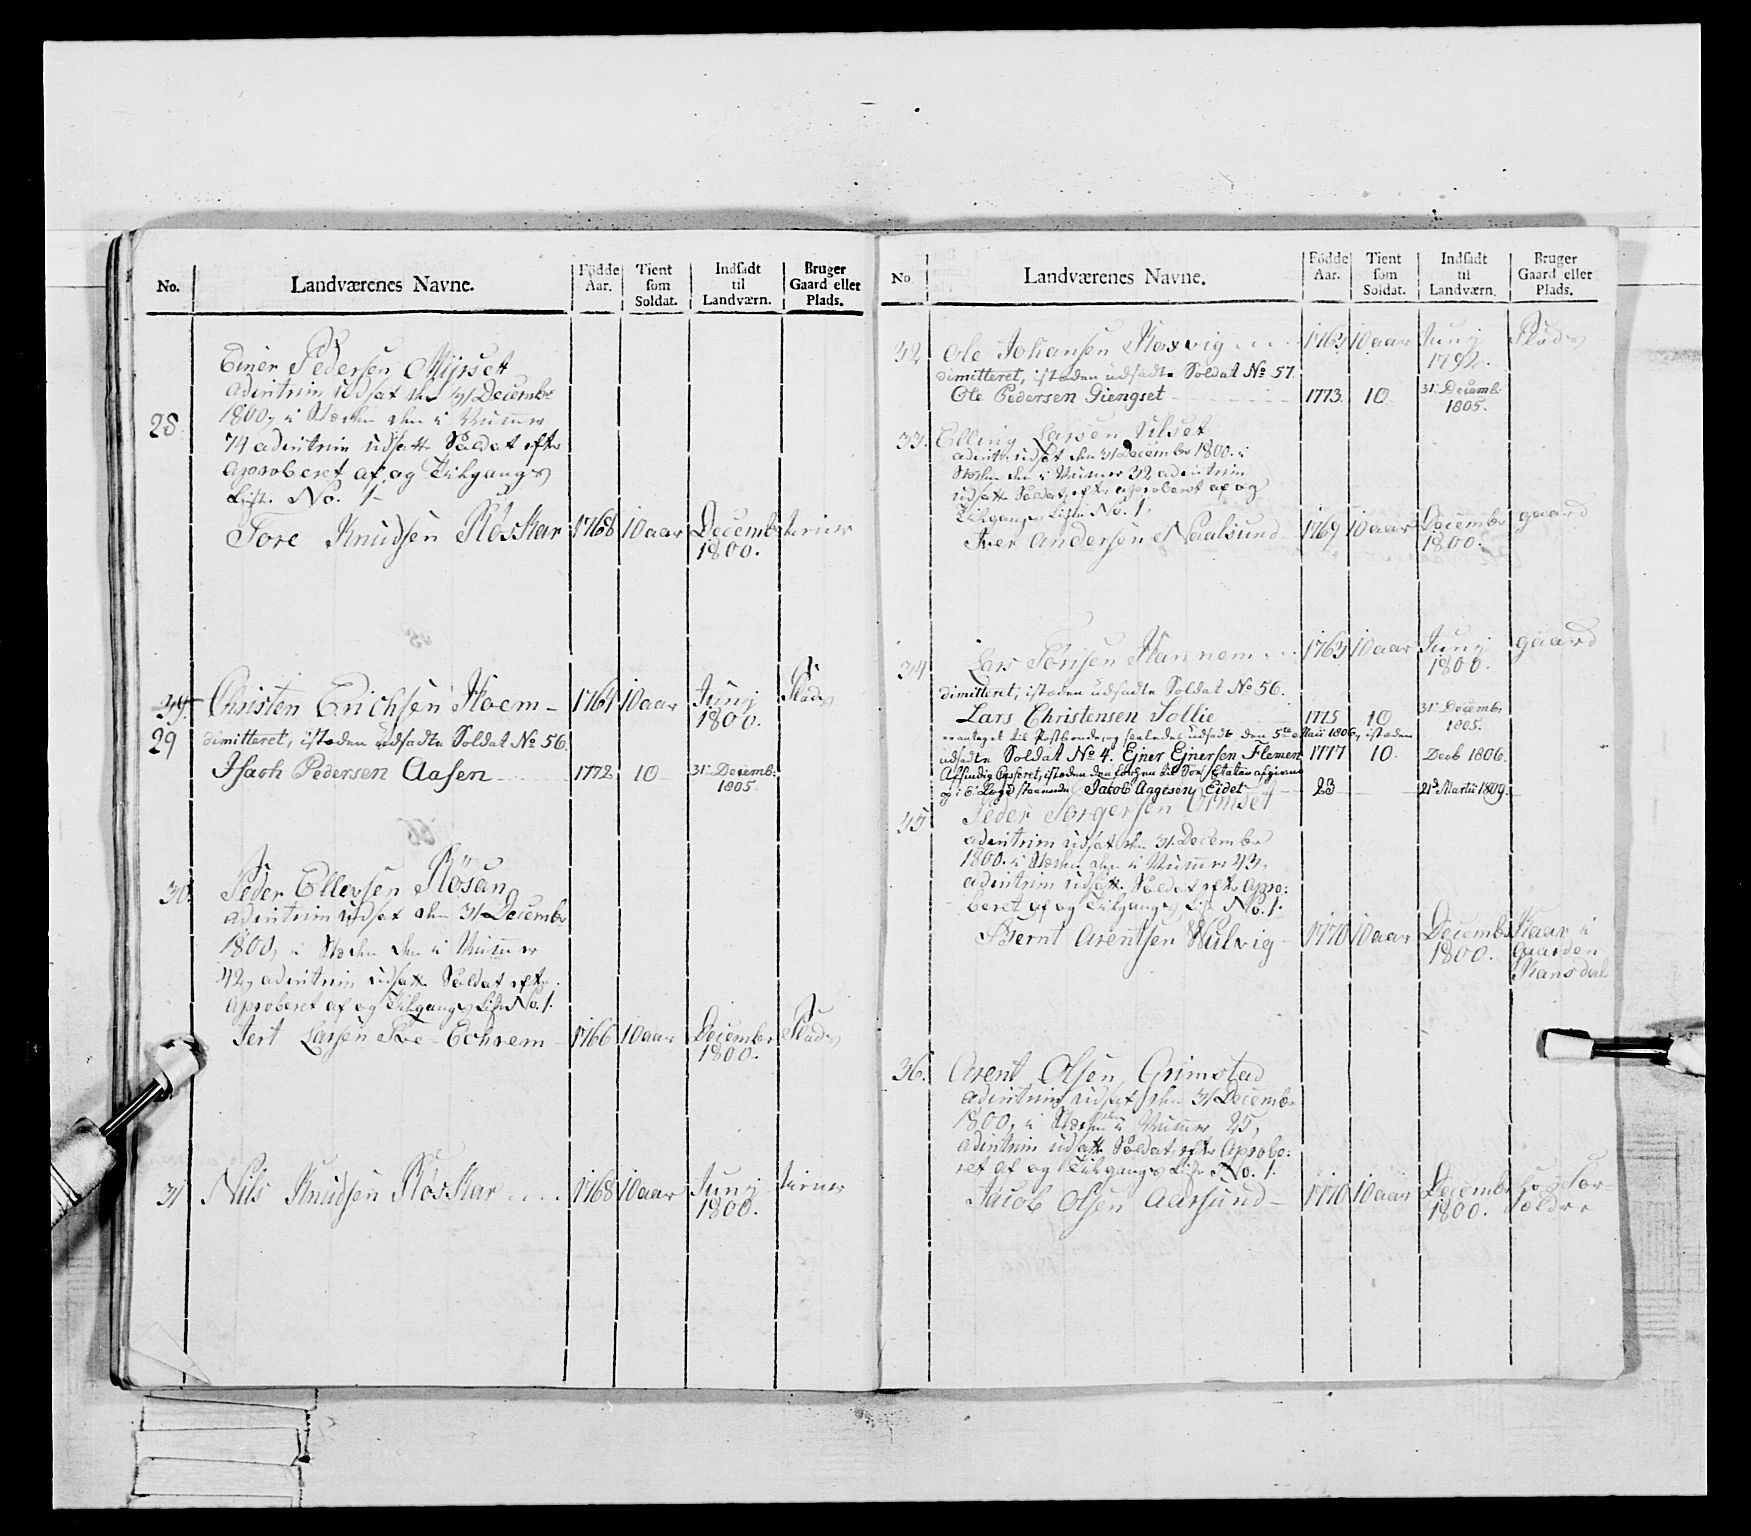 No.
Landværenes Navne.
Födde Aar.
Tient som Soldat.
Indsadt til Landværn.
Bruger Gaard eller Plads.
28.
Einer Pedersen Myrset
adintrim udsat den 31 December
1800, i Stæden den i Nummer
74 adintrim udsatte Soldat efter
Aproberet af og Tilgangs
Liste No. 1
Tore Knudsen Röskar 1768 10 aar Decembr 1800.
29
Christen Erichsen Hoem 1764 10 aar Junj 1800. Plads
dimitteret, isteden udsadte Soldat No 56.
Isach Pedersen Aasen 1772 10 31 Decemb: 1805.
30.
Peder Ellevsen Rösan
adintrim udsat den 31 Decembr
1800, i Stæden den i Nummer
42, adintrim udsatte Soldat efter
Aproberet af og Tilgangs Liste No. 1.
Larsen Echrem 1766 10 aar December 1800. Plads
31
Nils Knudsen Röskar 1768 10 aar Junj 1800.
No
Landværenes Navne.
Födde Aar.
Tient som Soldat.
Indsadt til Landværn.
Bruger Gaard eller Plads.
32
Ole Johansen 1763 10 aar Junj 1792. Plads
dimitteret, isteden udsadte Soldat No 57.
Ole Pedersen Giengset 1773. 10 31 Decemb: 1805.
33.
Elling Larsen Ulset
adintr. udsat den 31 December 1800. i
Stæden den i Nummer 32 adintrim
udsatte Soldat, efter aproberet af og
Tilgangs Liste No. 1.
Iver Andersen Naalsund 1769 10 aar December 1800. gaard
34
Lars Hannem 1763 10 aar Junj 1800. gaard
dimitteret, isteden udsadte Soldat No 56.
Lars Christensen Sollie 1775 10 31 Decemb: 1805.
antaget til Postbonde, og saaledes udsadt den 5te Maii 1806, isteden
udsadte Soldat No 4. Ejner Ejnersen Flemen 1777 10. Decb 1806.
Jacob Aagesen Eidet 23 21de Martii 1809.
45
Peder Ormset
adintrim udsat den 31 December
1800. i Stæden den i Nummer 43,
adintrim udsatte Soldat efter Apro:
beret af og Tilgangs Liste No. 1.
Bernt Arentsen Wulvig 1770 10 aar Decembr 1800. Kaar i Gaarden
36.
Arent Olsen Grimstad
adintrim udsat den 31 Decembr
1800, i Stæden den i Nummer 25,
adintrim udsatte Soldat, efter Aprobe:
ret af og Tilgangs Liste No. 1.
Jacob Olsen Aarsund 1770 10 aar Decembr 1800. hos For-
ældre